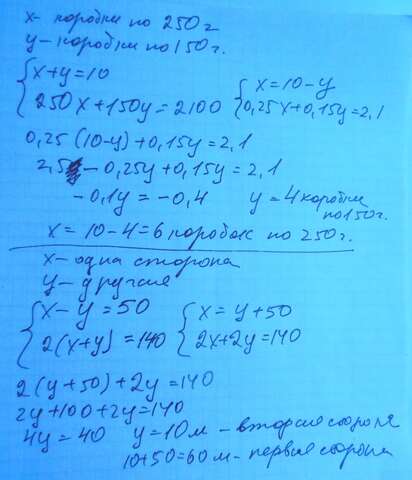 x - коробки по 250 г
y - коробки по 150 г.
{ x + y = 10
250x + 150y = 2100
{ x = 10 - y
0,25x + 0,15y = 2,1
0,25 (10 - y) + 0,15y = 2,1
2,5 - 0,25y + 0,15y = 2,1
- 0,1y = - 0,4 y = 4 коробки
по 150 г.
x = 10 - 4 = 6 коробок по 250 г.
x - одна сторона
y - другая
{ x - y = 50
2(x + y) = 140
{ x = y + 50
2x + 2y = 140
2 (y + 50) + 2y = 140
2y + 100 + 2y = 140
4y = 40 y = 10 м - вторая сторона
10 + 50 = 60 м - первая сторона